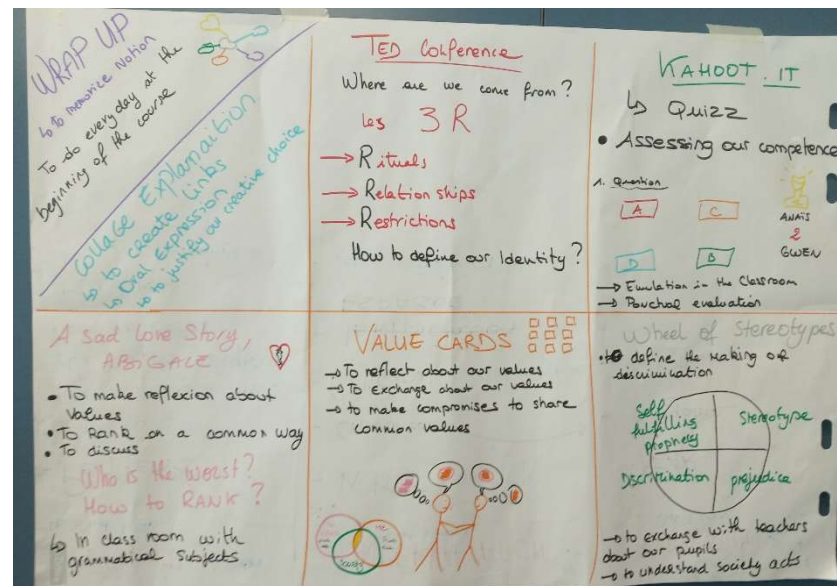 WRAP UP
↳ To memorize Notion
To do everyday at the
beginning of the course
Collage Explanaition
↳ to create links
↳ Oral Expression
↳ to justify our creative choice
TED Conference
Where are we come from?
Les 3 R
→ Rituals
→ Relation ships
→ Restrictions
How to define our Identity?
KAHOOT.IT
↳ Quizz
• Assessing our competence
1. Question
A C
D B
ANAÏS
2
GWEN
→ Emulation in the Classroom
→ Ponctual evaluation
A Sad Love Story,
ABIGALE
• To make reflexion about
values
• To Rank on a common way
• To discuss
Who is the worst?
How to RANK?
↳ In class room with
grammatical subjects
VALUE CARDS
→ To reflect about our values
→ To exchange about our values
→ to make compromises to share
common values
Wheel of Stereotypes
• to define the making of
descrimination
Self
fulfilling
prophety
Stereotype
Discrimination
prejudice
→ to exchange with teachers
about our pupils
→ to understand society acts